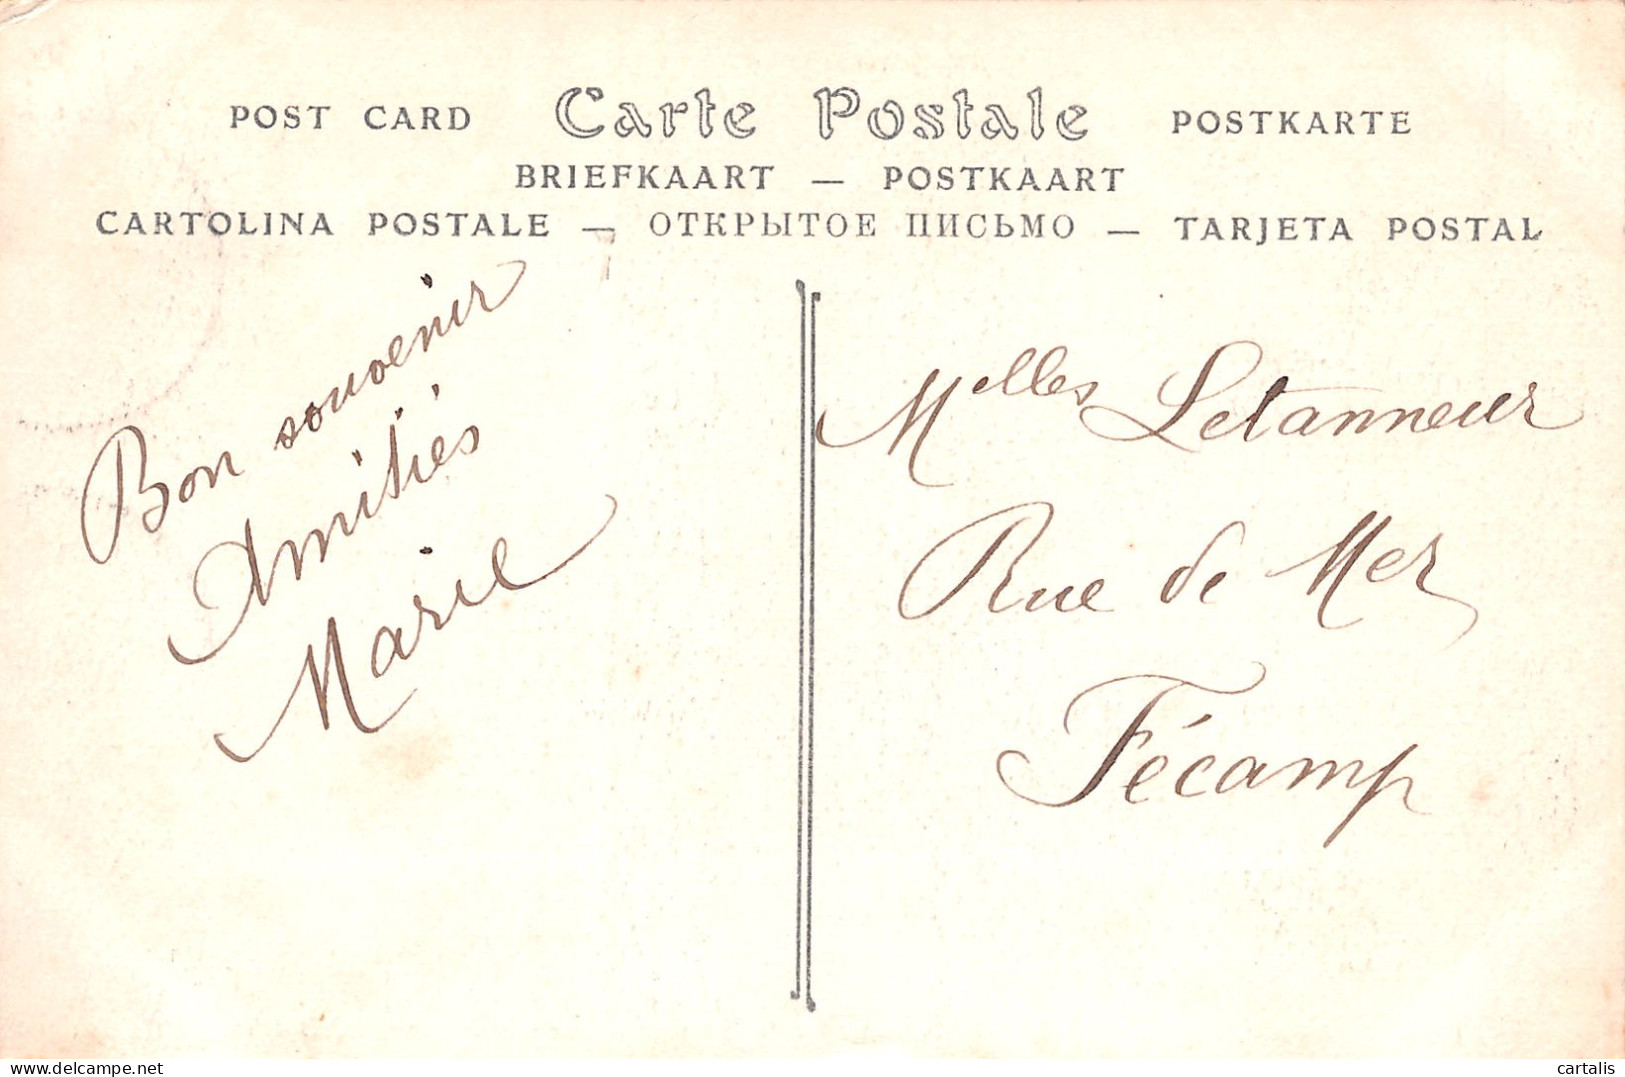 POST CARD Carte Postale POSTKARTE
BRIEFKAART — POSTKAART
CARTOLINA POSTALE — ОТКРЫТОЕ ПИСЬМО — TARJETA POSTAL
Bon souvenir
Amitiés
Marie
Melles Letanneur
Rue de Mer
Fécamp
delcampe.net
cartalis